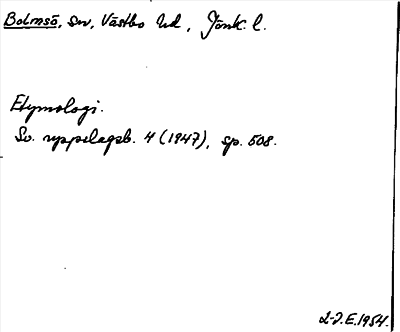 Bolmsö, sn, Västbo hd, Jönk. l.
Etymologi.
Sv. uppslagsb. 4 (1947), sp. 508.
L-J.E. 1954.